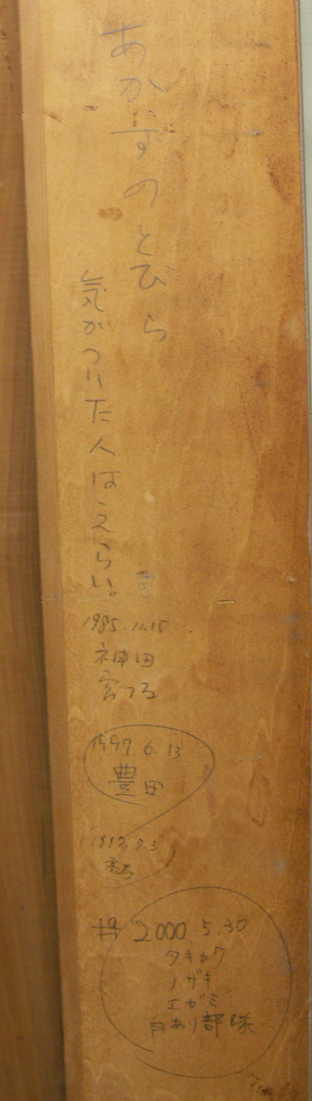 あかずのとびら
気がついた人はえらい。
1985.11.15
神田
1997.6.13
豊田
2000.5.30
タキタク
ノザキ
エガミ
白あり部隊